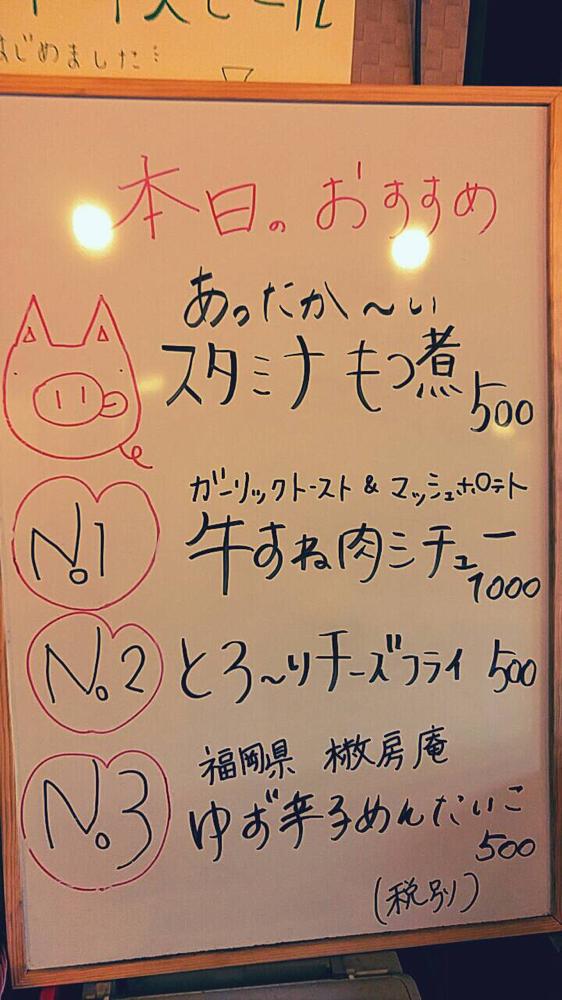 はじめました
本日のおすすめ
あったか〜い
スタミナもつ煮
500
ガーリックトースト & マッシュポテト
No1 牛すね肉シチュー
1000
No.2 とろ〜りチーズフライ 500
福岡県 椒房庵
No.3 ゆず辛子めんたいこ
500
(税別)